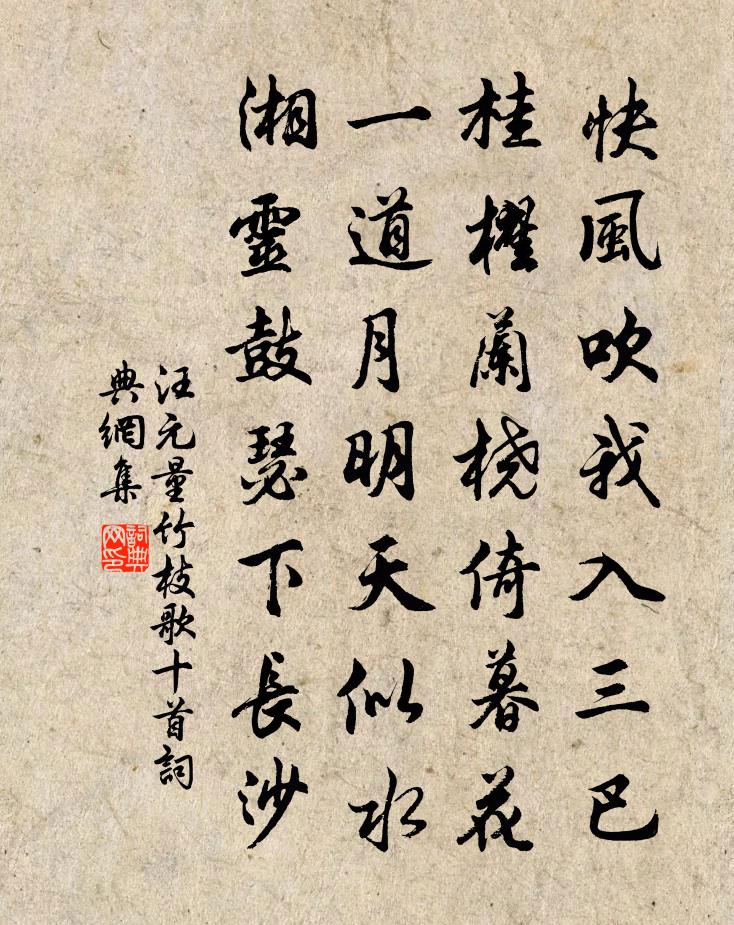 快風吹我入三巴
桂櫂蘭橈倚暮花
一道月明天似水
湘靈鼓瑟下長沙
汪元量竹枝歌十首詞
典網集
詞典
网印